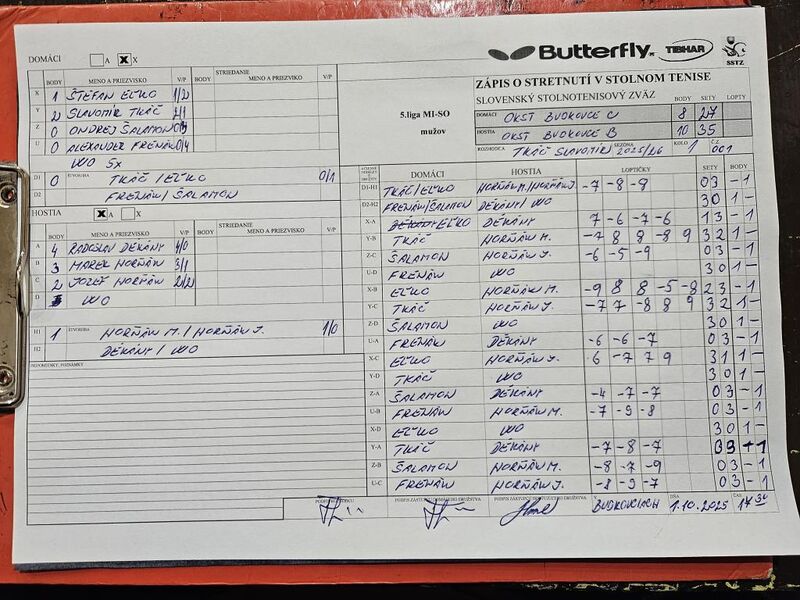 DOMÁCI A X X
Butterfly
TIBHAR
SSTZ
BODY MENO A PRIEZVISKO V/P BODY STRIEDANIE MENO A PRIEZVISKO V/P
X 1 ŠTEFAN EĽKO 1/2
Y 2 SLAVOMÍR TKÁČ 2/1
Z 0 ONDREJ ŠALAMON 0/3
U 0 ALEXANDER FREŇÁK 0/4
WO 5x
D1 0 ŠTVORHRA TKÁČ / EĽKO 0/1
D2 FREŇÁK / ŠALAMON
HOSTIA X A X
BODY MENO A PRIEZVISKO V/P BODY STRIEDANIE MENO A PRIEZVISKO V/P
A 4 RADOSLAV DÉKÁNY 4/0
B 3 MAREK HORŇÁK 3/1
C 2 JOZEF HORŇÁK 2/2
D WO
H1 1 ŠTVORHRA HORŇÁK M. / HORŇÁK J. 1/0
H2 DÉKÁNY / WO
PRIPOMIENKY, POZNÁMKY
5.liga MI-SO
mužov
ZÁPIS O STRETNUTÍ V STOLNOM TENISE
SLOVENSKÝ STOLNOTENISOVÝ ZVÄZ BODY SETY LOPTY
DOMÁCI OKST BUDKOVCE C 8 27
HOSTIA OKST BUDKOVCE B 10 35
ROZHODCA TKÁČ SLAVOMÍR SEZÓNA 2025/26 KOLO 1 001
DOMÁCI HOSTIA LOPTIČKY SETY BODY
D1-H1 TKÁČ / EĽKO HORŇÁK M. / HORŇÁK J. -7 -8 -9 0 3 - 1
D2-H2 FREŇÁK / ŠALAMON DÉKÁNY / WO 3 0 1 -
X-A EĽKO DÉKÁNY 7 -6 -7 -6 1 3 - 1
Y-B TKÁČ HORŇÁK M. -7 8 8 -8 9 3 2 1 -
Z-C ŠALAMON HORŇÁK J. -6 -5 -9 0 3 - 1
U-D FREŇÁK WO 3 0 1 -
X-B EĽKO HORŇÁK M. -9 8 8 -5 -8 2 3 - 1
Y-C TKÁČ HORŇÁK J. -7 7 -8 8 9 3 2 1 -
Z-D ŠALAMON WO 3 0 1 -
U-A FREŇÁK DÉKÁNY -6 -6 -7 0 3 - 1
X-C EĽKO HORŇÁK J. 6 -7 7 9 3 1 1 -
Y-D TKÁČ WO 3 0 1 -
Z-A ŠALAMON DÉKÁNY -4 -7 -7 0 3 - 1
U-B FREŇÁK HORŇÁK M. -7 -9 -8 0 3 - 1
X-D EĽKO WO 3 0 1 -
Y-A TKÁČ DÉKÁNY -7 -8 -7 0 3 - 1
Z-B ŠALAMON HORŇÁK M. -8 -7 -9 0 3 - 1
U-C FREŇÁK HORŇÁK J. -8 -9 -7 0 3 - 1
BUDKOVCIACH DŇA 1.10.2025 ČAS 17 30